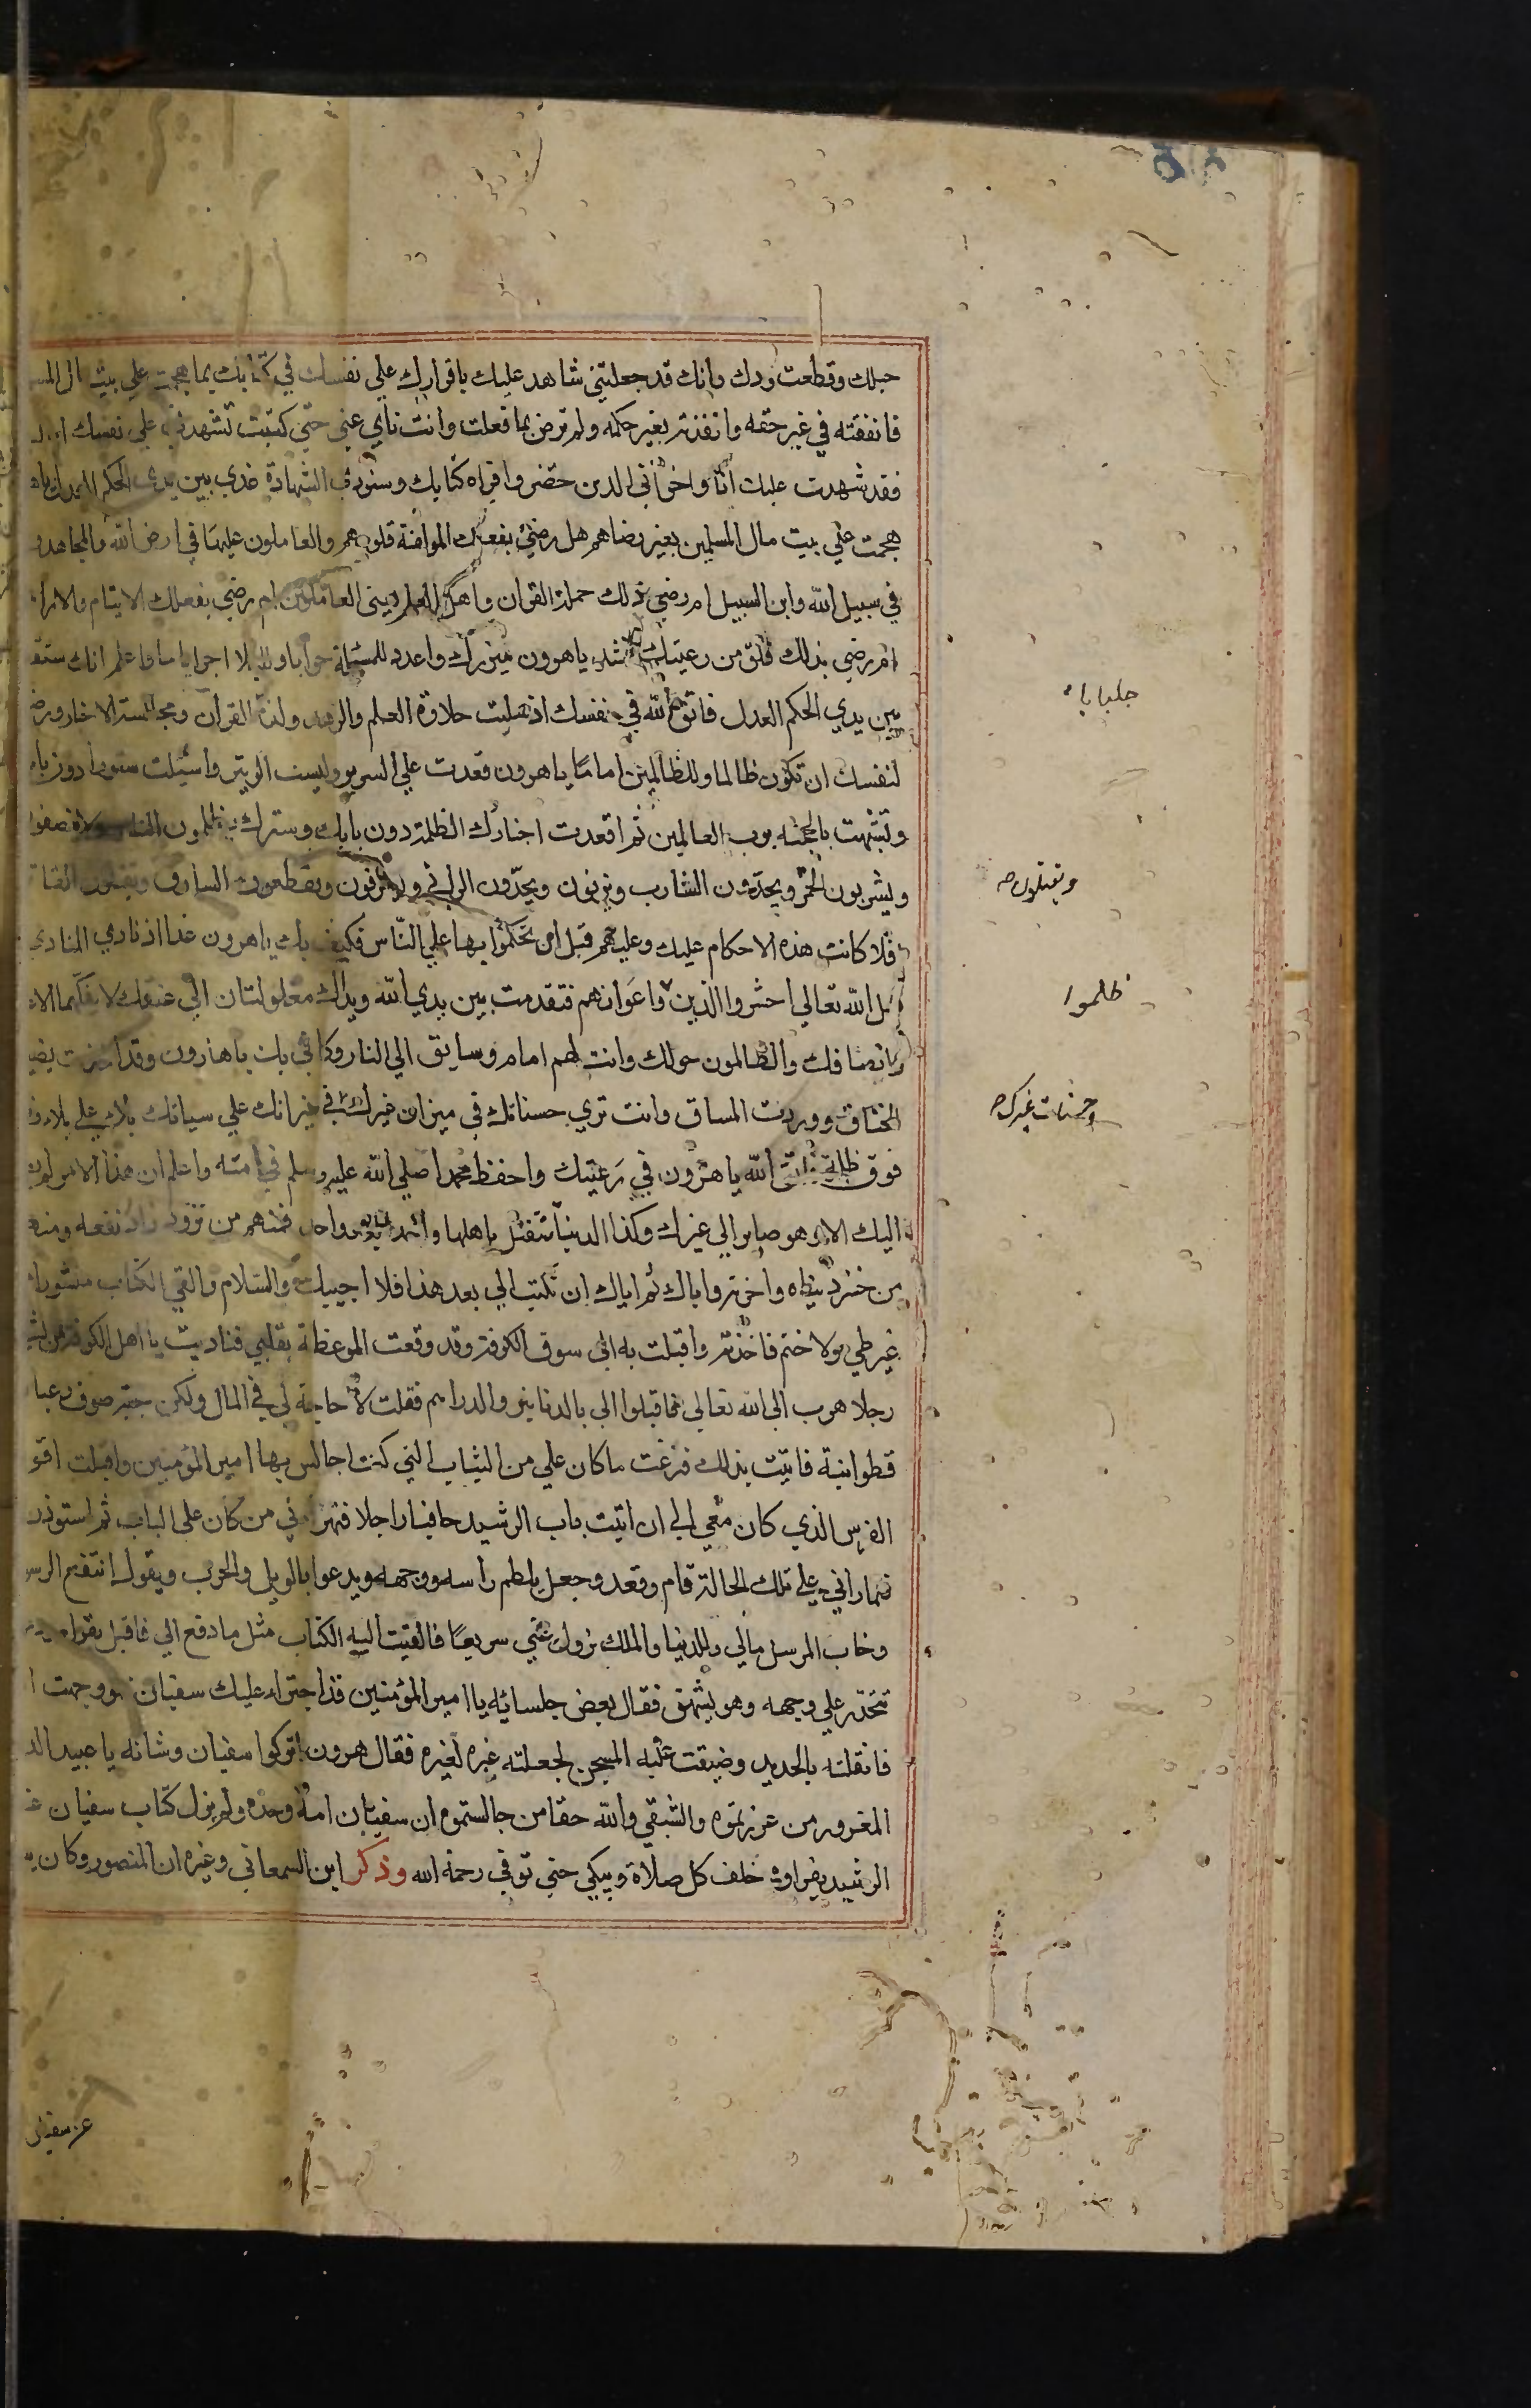 حبلك وقطعت ودك وانك قد جعلتني شاهد عليك باقرارك علي نفسك في كتابك بما هجمت علي بيت مال المسـ
فانفقته في غير حقه وانفذته بغير حكمه ولم ترض بما فعلت وانت ناي عني حتي كتبت تشهدني علي نفسك
فقد شهدت عليك انا واخواني الدين حضروا قراه كتابك وسنودي الشهادة غدي بين يدي الحكم العدل ياهـ
هجمت علي بيت مال المسلمين بغير رضاهم هل رضي بفعلك المولفة قلوبهم والعاملون عليها في ارض الله والمجاهدو
في سبيل الله وابن السبيل ام رضي ذلك حملة القران واهل العلم يعني العاملون ام رضي بفعلك الايتام والارا
ام رضي بذلك خلق من رعيتك فشد ياهرون ميزرك واعدد للمسئلة جوابا وللبلا واعلم انك ستقـ
بين يدي الحكم العدل فاتق الله في نفسك اذ سلبت حلاوة العلم والزهد ولذة القران ومجالسة الاخيار ورضـ
لنفسك ان تكون ظالما وللظالمين اماما ياهرون قعدت علي السرير ولبست الوثير واسبلت ستورا دون با
وتشبهت بالحجبه برب العالمين ثم اقعدت اجنادك الظلمة دون بابك وسترك يظلمون الناس ولا ينصفوا
ويشربون الخمر ويحدون الشارب ويزنون ويحدون الزاني ويسرقون ويقطعون السارق ويقتلون القا
فلا كانت هذه الاحكام عليك وعليهم قبل ان تحكموا بها علي الناس فكيف بك ياهرون غدا اذ نادي المنادي
قبل الله تعالي احشروا الذين واعوانهم فتقدمت بين يدي الله ويداك مغلولتان الي عنقك لا يفكهما الا
وانصافك والظالمون حولك وانت لهم امام وسايق الي النار وكاني بك ياهارون وقد اخذت بضيـ
الخناق ووردت المساق وانت تري حسناتك في ميزان غيرك في ميزانك علي سياتك بلاء علي بلاء و
فوق ظلمة فاتق الله ياهرون في رعيتك واحفظ محمدا صلي الله عليه وسلم في امته واعلم ان هذا الامر لم
اليك الا وهو صاير الي غيرك وكذا الدنيا تنتقل باهلها واحدا بعد واحد فمنهم من تزود زادا نفعه ومنهـ
من خسر دنياه واخرته واياك ثم اياك ان تكتب الي بعد هذا فلا اجيبك والسلام والقي الكتاب منشورا
غير طي ولا ختم فاخذته واقبلت به الي سوق الكوفة وقد وقعت الموعظة بقلبي فناديت يا اهل الكوفة من يشـ
رجلا هرب الي الله تعالي فاقبلوا الي بالدنانير والدراهم فقلت لا حاجة لي في المال ولكن جبة صوف وعبا
قطوانية فاتيت بذلك فنزعت ما كان علي من الثياب التي كنت اجالس بها امير المؤمنين واقبلت اقو
الفرس الذي كان معي الي ان اتيت باب الرشيد حافيا راجلا فهزاني من كان علي الباب ثم استوذن
فلما راني علي تلك الحالة قام وقعد وجعل يلطم راسه ووجهه ويدعوا بالويل والحرب ويقول انتفع الرسـ
وخاب المرسل مالي وللدنيا والملك يزول عني سريعا فالقيت اليه الكتاب مثل ما دفع الي فاقبل يقراه
تتحدر علي وجهه وهو يشهق فقال بعض جلسائه يا امير المؤمنين قد اجترا عليك سفيان فلو وجهت ا
فاثقلته بالحديد وضيقت عليه السجن لجعلته عبره لغيره فقال هرون اتركوا سفيان وشانه يا عبيد الد
المغرور من غررتموه والشقي والله حقا من جالستموه ان سفيان امة وحده ولم يزل كتاب سفيان عـ
الرشيد يقراوه خلف كل صلاة ويبكي حتي توفي رحمة الله وذكر ابن السمعاني وغيره ان المنصور وكان
جلبابا
ويقتلون صـ
ظلموا
وحسنات غيرك صـ
عن سفيان